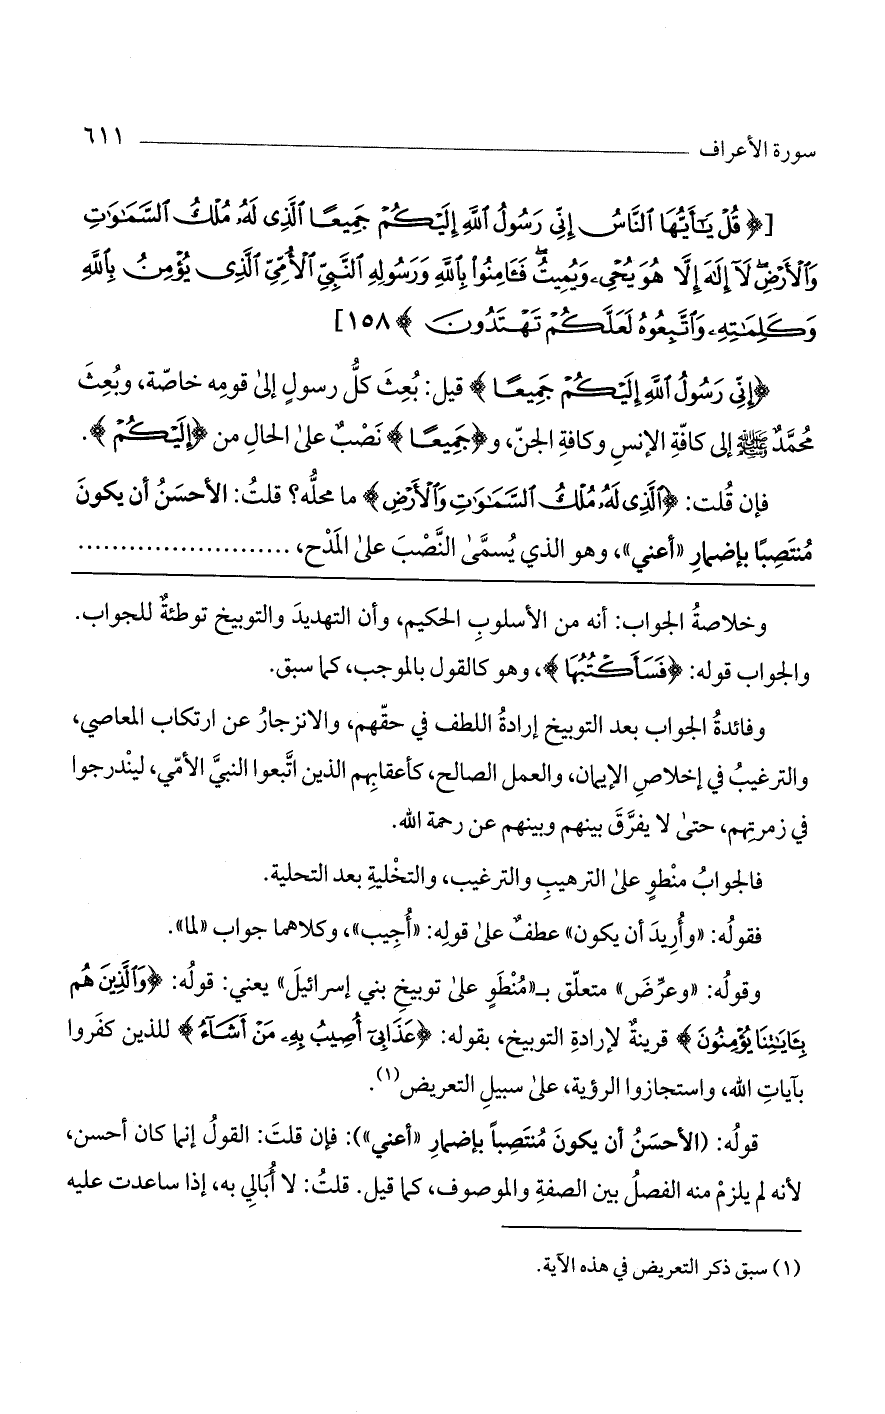 سورة الأعراف ٦١١
[﴿ قُلْ يَـٰٓأَيُّهَا ٱلنَّاسُ إِنِّى رَسُولُ ٱللَّهِ إِلَيْكُمْ جَمِيعًا ٱلَّذِى لَهُۥ مُلْكُ ٱلسَّمَـٰوَٰتِ
وَٱلْأَرْضِۖ لَآ إِلَـٰهَ إِلَّا هُوَ يُحْىِۦ وَيُمِيتُۖ فَـَٔامِنُوا۟ بِٱللَّهِ وَرَسُولِهِ ٱلنَّبِىِّ ٱلْأُمِّىِّ ٱلَّذِى يُؤْمِنُ بِٱللَّهِ
وَكَلِمَـٰتِهِۦ وَٱتَّبِعُوهُ لَعَلَّكُمْ تَهْتَدُونَ ﴾ ١٥٨]
﴿إِنِّى رَسُولُ ٱللَّهِ إِلَيْكُمْ جَمِيعًا ﴾ قيل: بُعِثَ كلُّ رسولٍ إلىٰ قومِه خاصّة، وبُعِثَ
مُحمَّدٌ ﷺ إلى كافّةِ الإنسِ وكافةِ الجنّ، و﴿جَمِيعًا ﴾ نَصْبٌ علىٰ الحالِ من ﴿إِلَيْكُمْ ﴾.
فإن قُلت: ﴿ٱلَّذِى لَهُۥ مُلْكُ ٱلسَّمَـٰوَٰتِ وَٱلْأَرْضِ﴾ ما محلُّه؟ قلتُ: الأحسَنُ أن يكونَ
مُنتَصِبًا بإضمارِ «أعني»، وهو الذي يُسمَّىٰ النَّصْبَ علىٰ المَدْح، .........................
وخلاصةُ الجواب: أنه من الأسلوبِ الحكيم، وأن التهديدَ والتوبيخ توطئةٌ للجواب.
والجواب قوله: ﴿فَسَأَكْتُبُهَا ﴾، وهو كالقول بالموجب، كما سبق.
وفائدةُ الجواب بعد التوبيخ إرادةُ اللطف في حقّهم، والانزجارُ عن ارتكاب المعاصي،
والترغيبُ في إخلاصِ الإيمان، والعمل الصالح، كأعقابِهم الذين اتَّبعوا النبيَّ الأمّي، ليندرجوا
في زمرتِهم، حتىٰ لا يفرَّقَ بينهم وبينهم عن رحمة الله.
فالجوابُ منْطوٍ علىٰ الترهيبِ والترغيب، والتخْليةِ بعد التحلية.
فقولُه: «وأُريدَ أن يكون» عطفٌ علىٰ قولِه: «أُجيب»، وكلاهما جواب «لما».
وقولُه: «وعرِّضَ» متعلّق بـ«مُنْطَوٍ علىٰ توبيخِ بني إسرائيلَ» يعني: قولُه: ﴿وَٱلَّذِينَ هُم
بِـَٔايَـٰتِنَا يُؤْمِنُونَ ﴾ قرينةٌ لإرادةِ التوبيخ، بقوله: ﴿عَذَابِىٓ أُصِيبُ بِهِۦ مَنْ أَشَآءُ ﴾ للذين كفَروا
بآياتِ الله، واستجازوا الرؤية، علىٰ سبيلِ التعريض(١).
قولُه: (الأحسَنُ أن يكونَ مُنتَصِباً بإضمارِ «أعني»): فإن قلتَ: القولُ إنما كان أحسن،
لأنه لم يلزمْ منه الفصلُ بين الصفةِ والموصوف، كما قيل. قلتُ: لا أُبَالِي به، إذا ساعدت عليه
(١) سبق ذكر التعريض في هذه الآية.